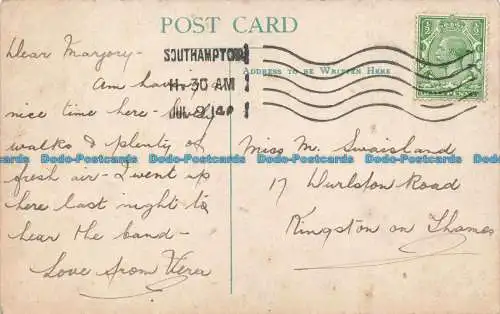 POST CARD
Dear Marjory -
Am having
nice time here -
walks & plenty of
fresh air - I went up
here last night to
hear the band -
Love from Vera
SOUTHAMPTON
11.30 AM
JUL 2 14
ADDRESS TO BE WRITTEN HERE
Miss M. Swaisland
17 Durlston Road
Kingston on Thames
Dodo-Postcards Dodo-Postcards Dodo-Postcards Dodo-Postcards Dodo-Postcards